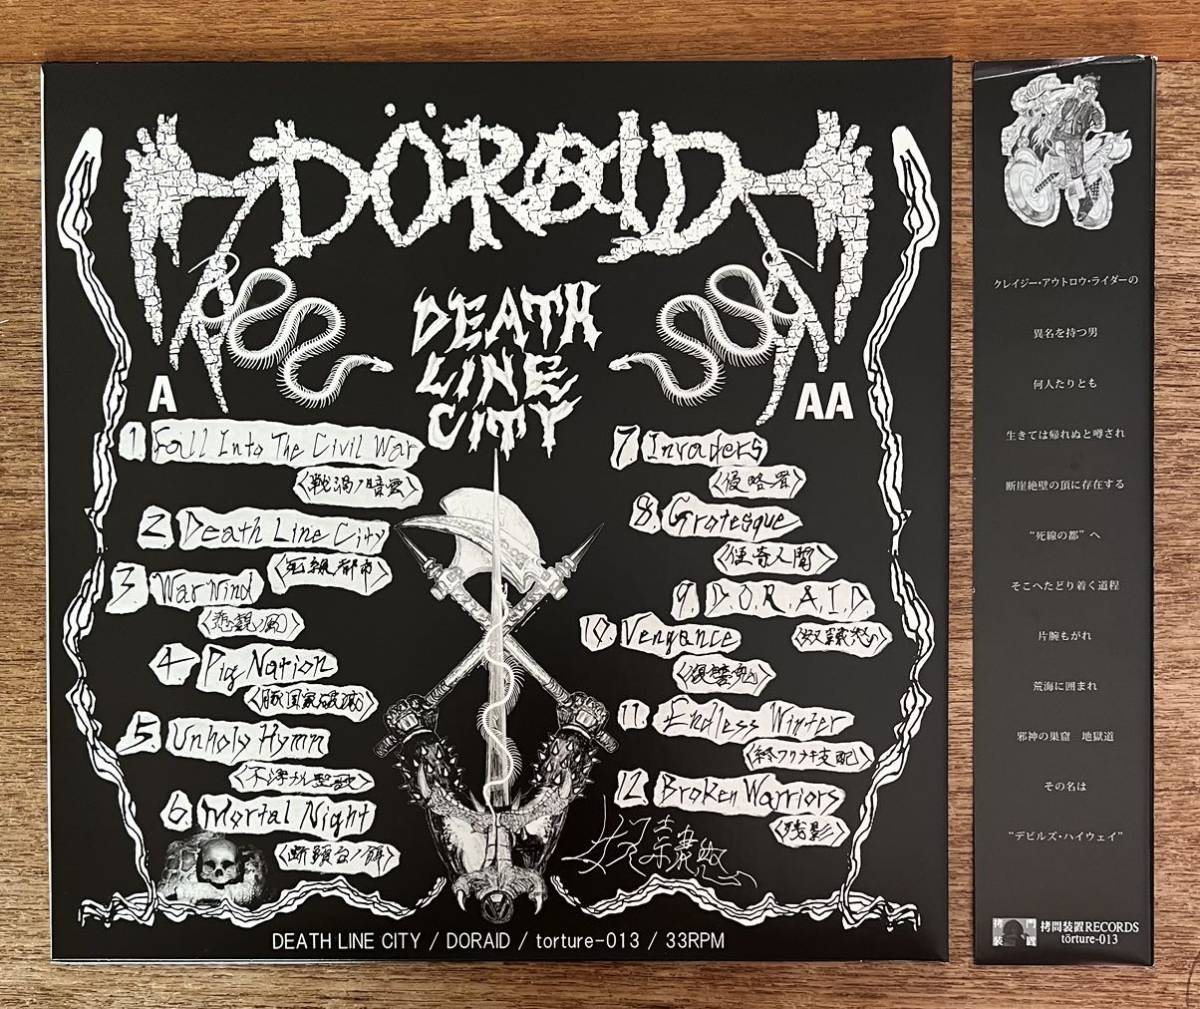 DÖRAID
DEATH
LINE
CITY
A
1. Fall Into The Civil War
〈戦渦ノ暗雲〉
2. Death Line City
〈死線都市〉
3 War Wind
〈悲観ノ風〉
4. Pig Nation
〈豚国家破滅〉
5. Unholy Hymn
〈不浄ナル聖歌〉
6. Mortal Night
〈断頭台ノ餌〉
AA
7 Invaders
〈侵略者〉
8. Grotesque
〈怪奇人間〉
9. D.O.R.A.I.D
10. Vengance
〈復讐鬼〉
11. Endless Winter
〈終ワリナキ支配〉
12 Broken Warriors
〈残影〉
DEATH LINE CITY / DORAID / torture-013 / 33RPM
クレイジー・アウトロウ・ライダーの
異名を持つ男
何人たりとも
生きては帰れぬと噂され
断崖絶壁の頂に存在する
“死線の都”へ
そこへたどり着く道程
片腕もがれ
荒海に囲まれ
邪神の巣窟　地獄道
その名は
“デビルズ・ハイウェイ”
拷問装置RECORDS
törture-013